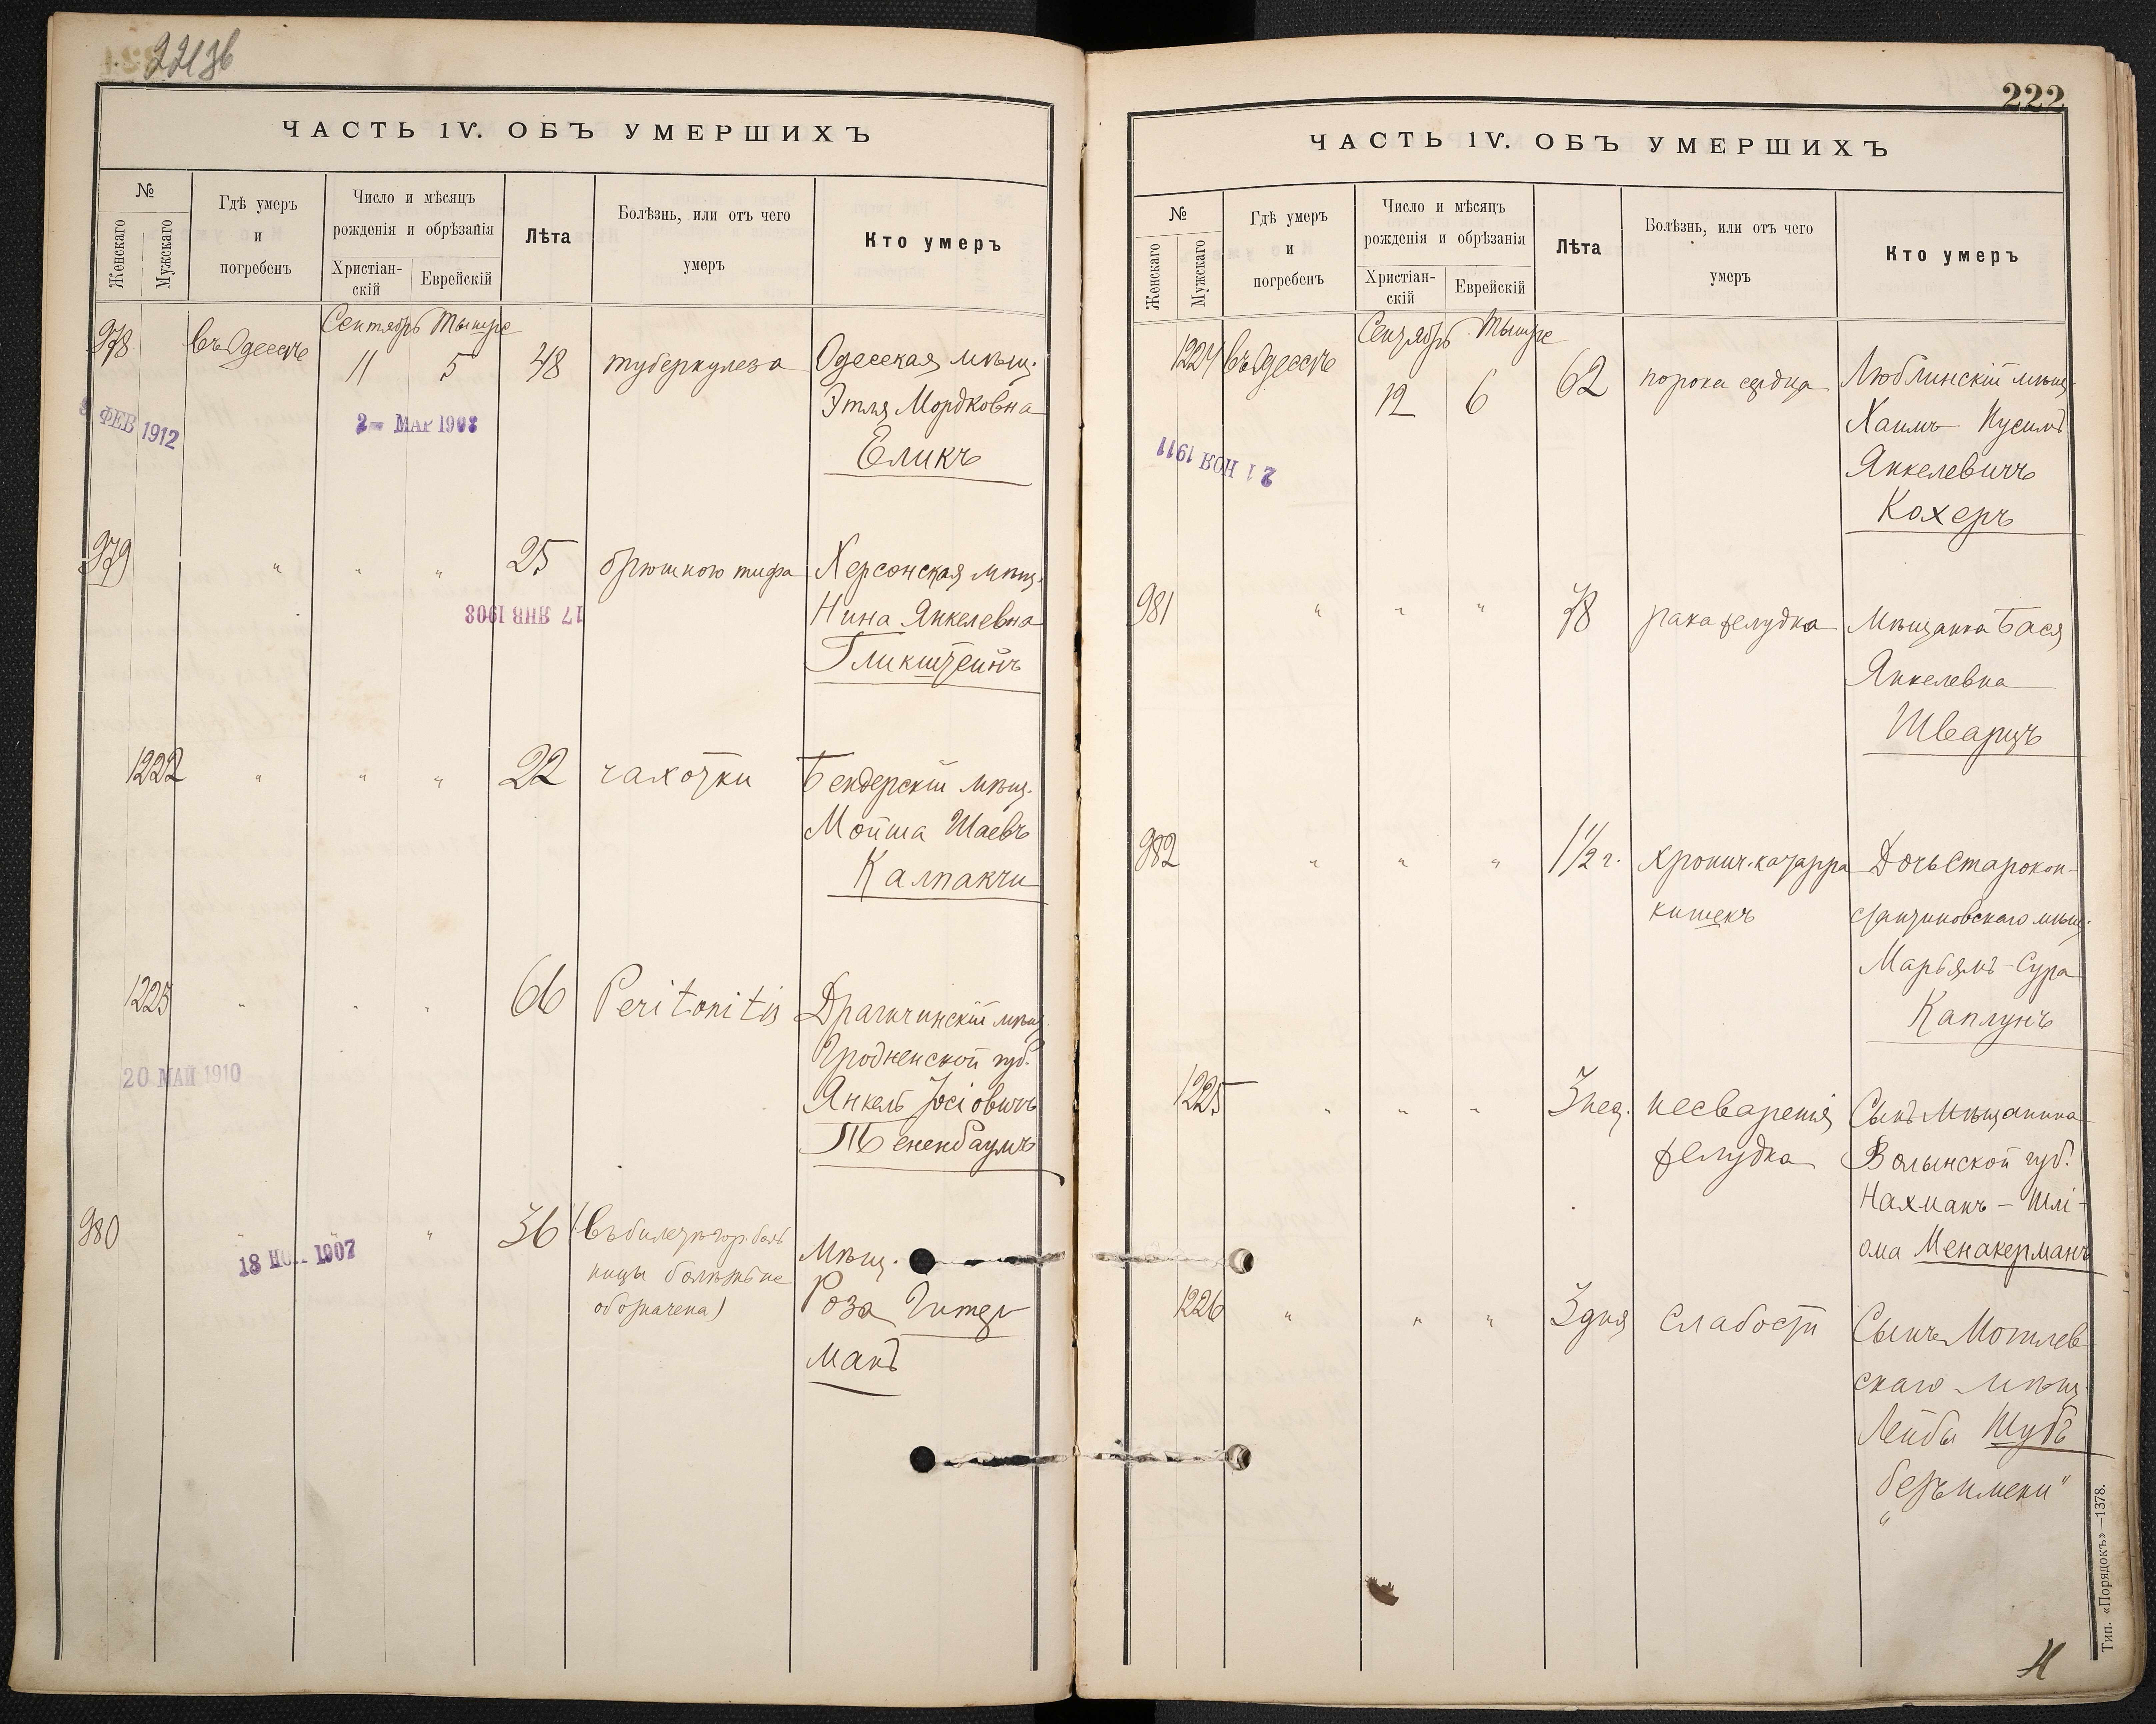 221 зв
ЧАСТЬ IV. ОБЪ УМЕРШИХЪ
№
Женскаго
Мужскаго
Гдѣ умеръ
и
погребенъ
Число и мѣсяцъ
рожденія и обрѣзанія
Христіан-
скій
Еврейскій
Лѣта
Болѣзнь, или отъ чего
умеръ
Кто умеръ
Сентябрь Тышре
978 въ Одессѣ 11 5 48 туберкулеза Одесская мѣщ.
Этля Мордковна
Еликъ
ФЕВ 1912
2 МАР 1908
979 " " " 25 брюшного тифа Херсонская мѣщ.
Нина Янкелевна
Гликштейнъ
17 ЯНВ 1908
1222 " " " 22 чахотки Бендерскій мѣщ.
Мойша Шаевъ
Калпакчи
1223 " " " 66 Peritonitis Драгичинскій мѣщ.
Гродненской губ.
Янкель Іосіовичъ
Тененбаумъ
20 МАЙ 1910
980 " " " 36 (въ билетѣ гор. боль
ницы болѣзнь не
обозначена)
Мѣщ.
Роза Гитер
манъ
18 НОЯ 1907
222
ЧАСТЬ IV. ОБЪ УМЕРШИХЪ
№
Женскаго
Мужскаго
Гдѣ умеръ
и
погребенъ
Число и мѣсяцъ
рожденія и обрѣзанія
Христіан-
скій
Еврейскій
Лѣта
Болѣзнь, или отъ чего
умеръ
Кто умеръ
Сентябрь Тышре
1224 въ Одессѣ 12 6 62 порока сердца Люблинскій мѣщ.
Хаимъ Нусимъ
Янкелевичъ
Кохеръ
21 НОЯ 1911
981 " " " 78 рака желудка Мѣщанка Бася
Янкелевна
Шварцъ
982 " " " 1 1/2 г. хронич. катарра Дочь Старокон-
кишекъ стантиновскаго мѣщ.
Марьямъ-Сура
Каплунъ
1225 " " " 3 нед. несваренія Сынъ мѣщанина
желудка Волынской губ.
Нахманъ-Шлі-
ома Менакерманъ
1226 " " " 3 дня слабости Сынъ Могилев
скаго мѣщ.
Лейбы Шубъ
"безъ имени"
Тип. «Порядокъ»—1378.